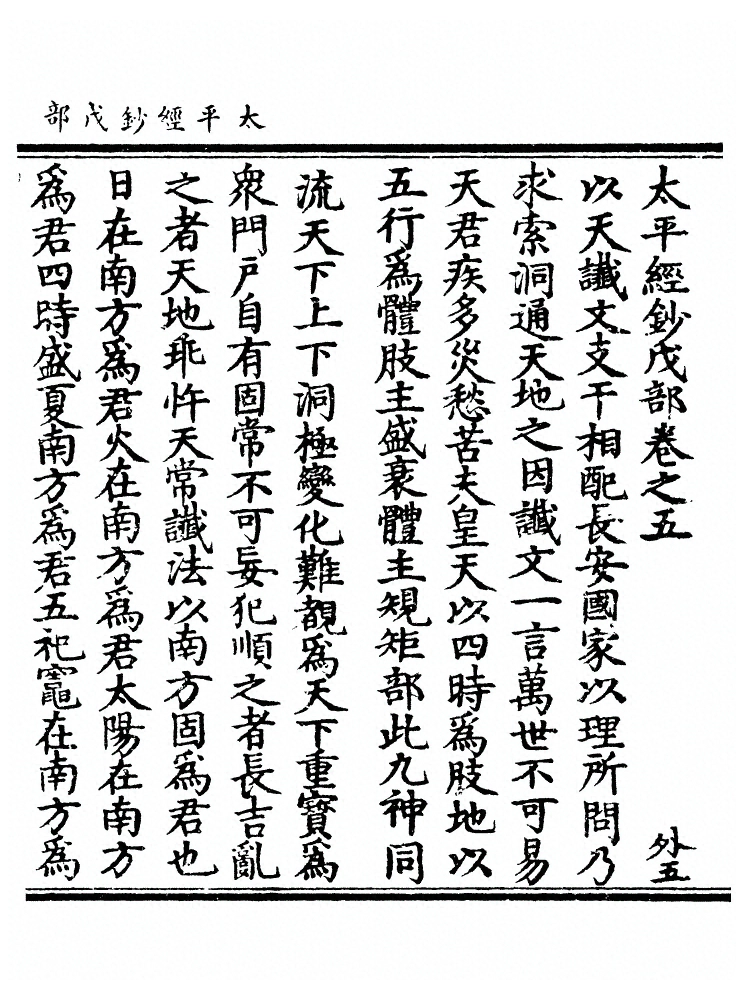 太平經鈔戊部
太平經鈔戊部卷之五
外五
以天讖文支干相配長安國家以理所問乃
求索洞通天地之因讖文一言萬世不可易
天君疾多災愁苦夫皇天以四時爲肢地以
五行爲體肢主盛衰體主規矩部此九神同
流天下上下洞極變化難覩爲天下重寳爲
衆門戶自有固常不可妄犯順之者長吉亂
之者天地乖忤天常讖法以南方固爲君也
日在南方爲君火在南方爲君太陽在南方
爲君四時盛夏南方爲君五祀竈在南方爲